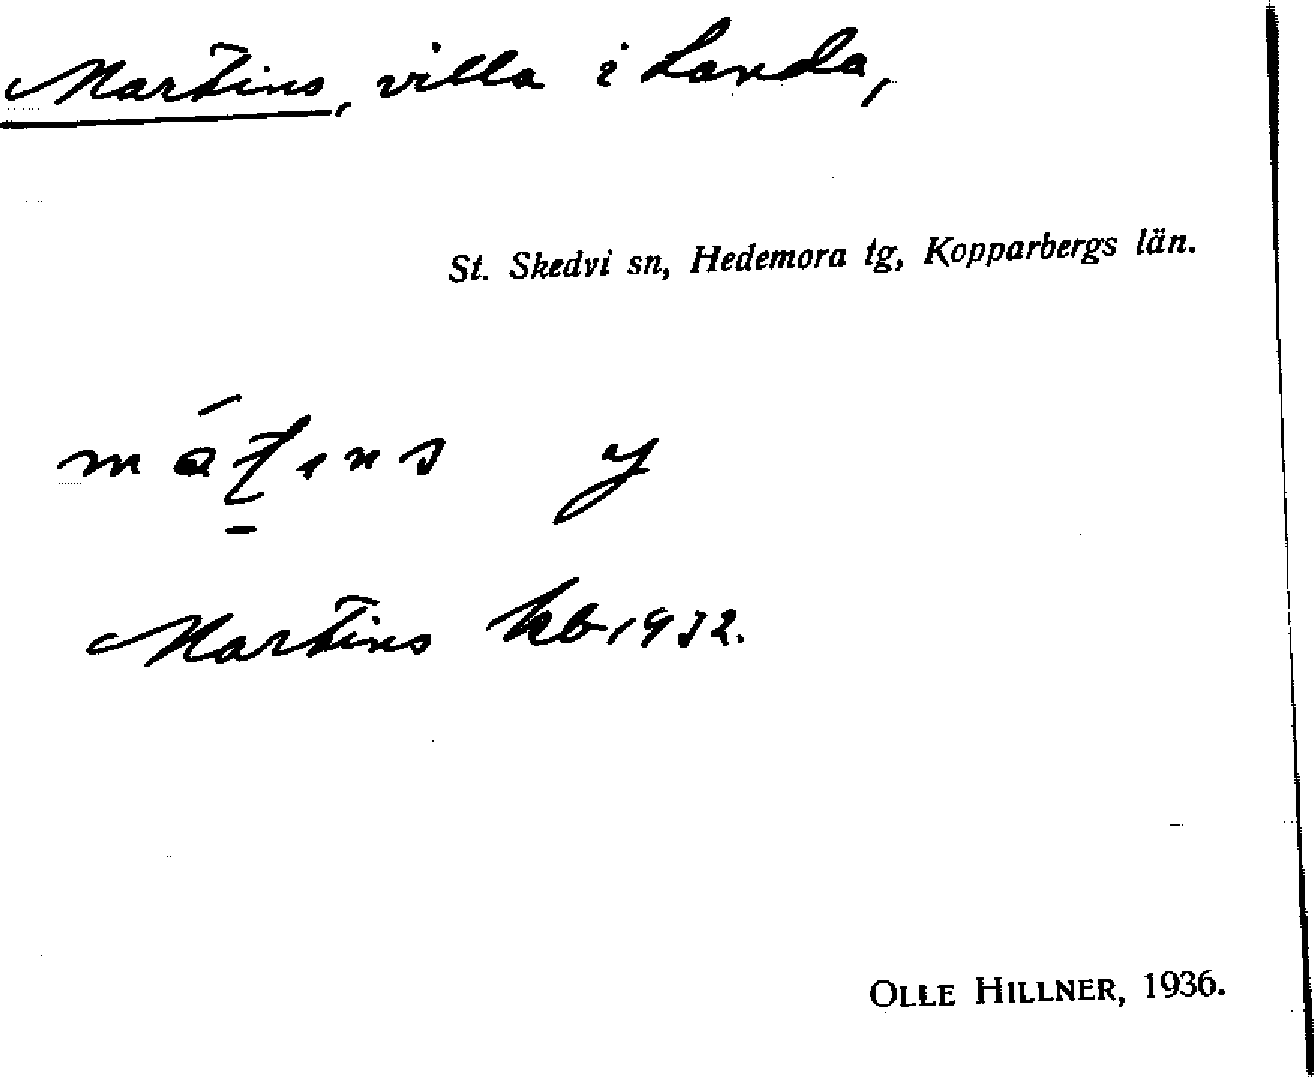 Martins, villa i Landa,
St. Skedvi sn, Hedemora tg, Kopparbergs län.
Martins kb 1932.
OLLE HILLNER, 1936.